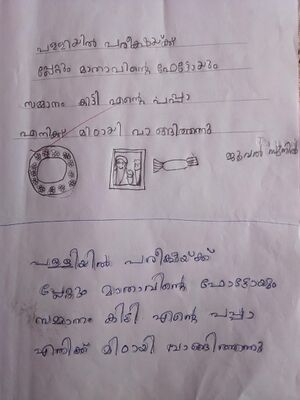 പള്ളിയിൽ പരീക്ഷയ്ക്ക്
പ്ലേറ്റും മാതാവിന്റെ ഫോട്ടോയും
സമ്മാനം കിട്ടി എന്റെ പപ്പാ
എനിക്ക് മിഠായി വാങ്ങിത്തന്നു
ജുവൽ
പള്ളിയിൽ പരീക്ഷയ്ക്ക്
പ്ലേറ്റും മാതാവിന്റെ ഫോട്ടോയും
സമ്മാനം കിട്ടി എന്റെ പപ്പാ
എനിക്ക് മിഠായി വാങ്ങിത്തന്നു